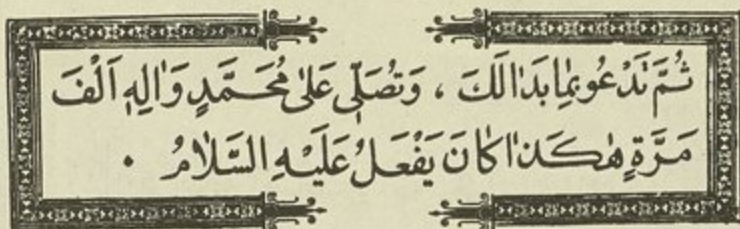 ثُمَّ تَدْعُو بِمَا بَدَا لَكَ ، وَتُصَلّٖى عَلٰى مُحَمَّدٍ وَاٰلِهٖ اَلْفَ
مَرَّةٍ هٰكَذٰا كٰانَ يَفْعَلُ عَلَيْهِ السَّلٰامُ .